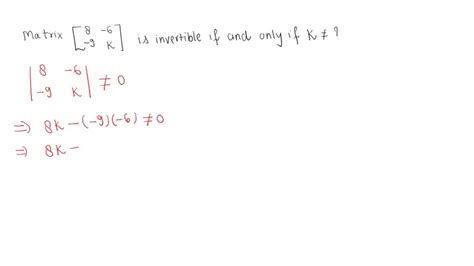 Matrix [8 -6
-9 K] is invertible if and only if K ≠ ?
|8 -6
-9 K| ≠ 0
⇒ 8K - (-9)(-6) ≠ 0
⇒ 8K -